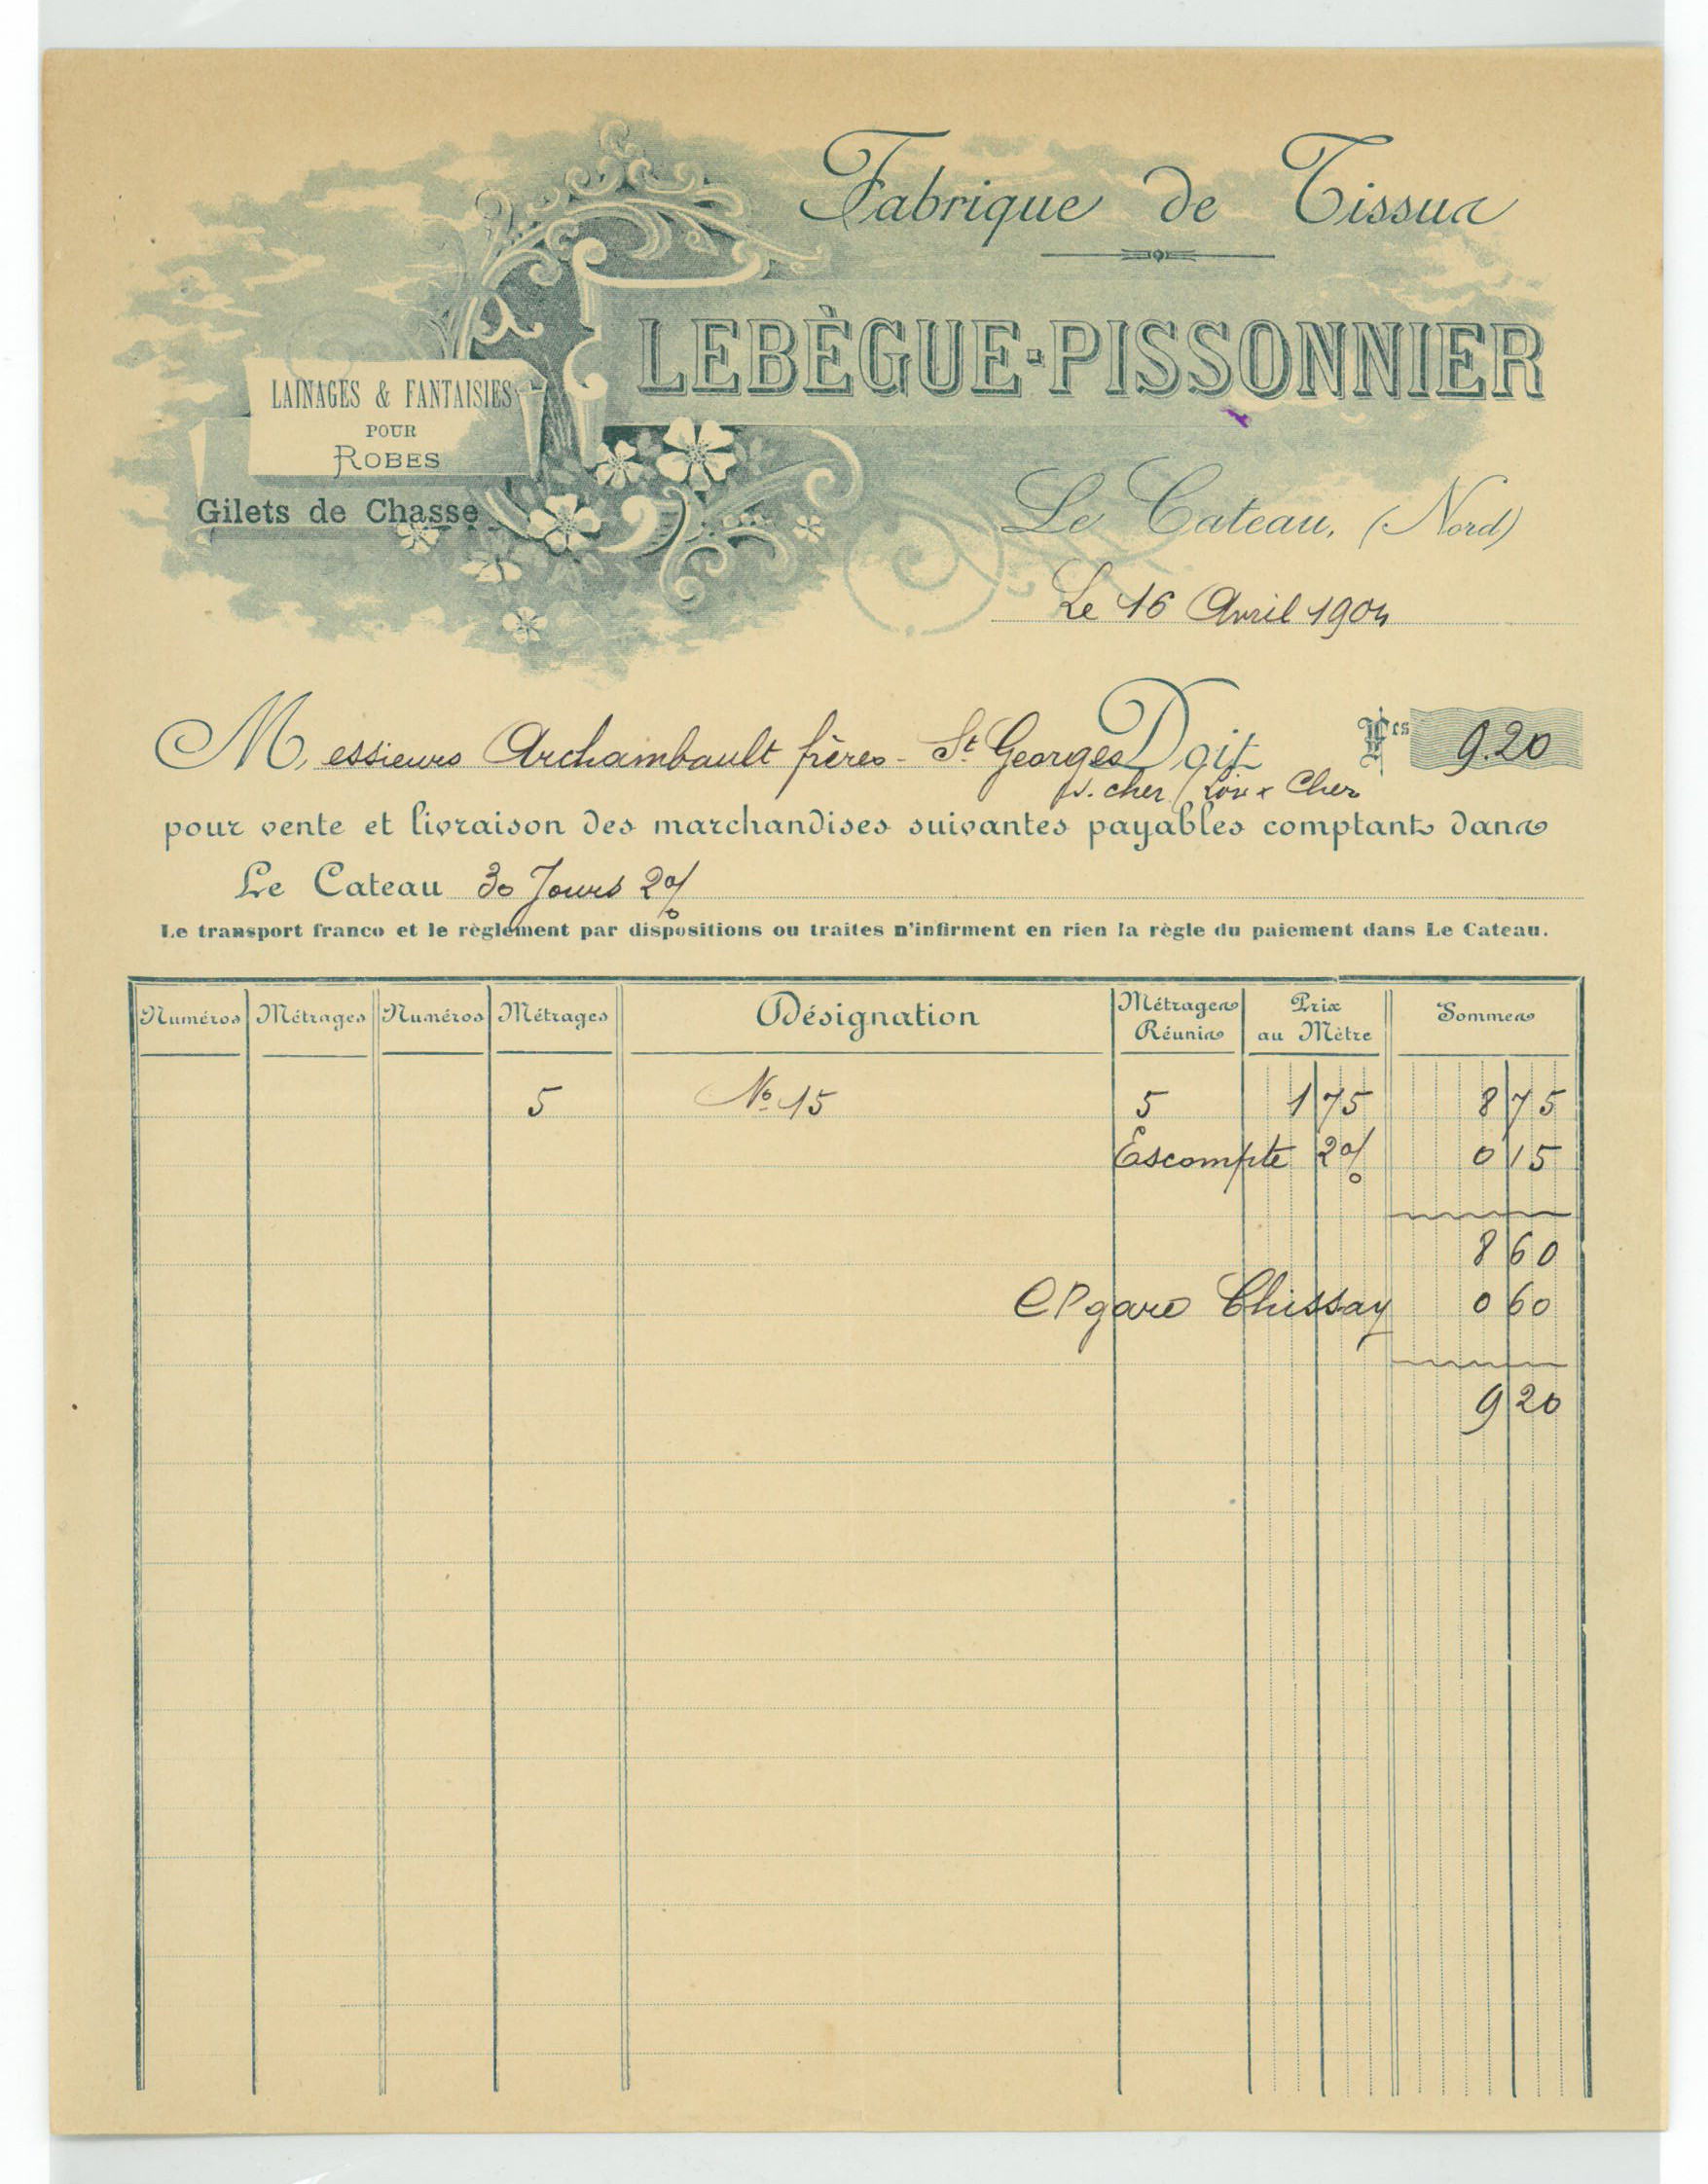 Fabrique de Tissus
LEBÈGUE-PISSONNIER
LAINAGES & FANTAISIES
POUR
ROBES
Gilets de Chasse
Le Cateau, (Nord)
Le 16 Avril 1904
Messieurs Archambault frères - St Georges Doit Fcs 9.20
s. cher / Loir & Cher
pour vente et livraison des marchandises suivantes payables comptant dans
Le Cateau 30 Jours 2%
Le transport franco et le règlement par dispositions ou traites n'infirment en rien la règle du paiement dans Le Cateau.
Numéros Métrages Numéros Métrages Désignation Métrages Réunis Prix au Mètre Sommes
5 No 15 5 1 75 8 75
Escompte 2% 0 15
8 60
CP gare Chissay 0 60
9 20